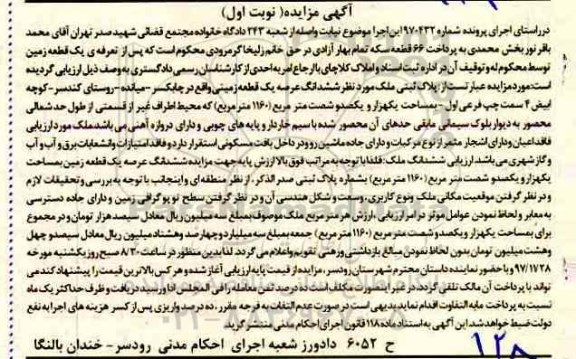 آگهی مزایده( نوبت اول)
در راستای اجرای پرونده شماره ۹۷۰۴۳۲ این اجرا موضوع نیابت واصله از شعبه ۲۴۳ دادگاه خانواده مجتمع قضائی شهید صدر تهران آقای محمد
باقر نوربخش محمدی به پرداخت ۶۶ قطعه سکه تمام بهار آزادی در حق خانم زلیخا گرمرودی محکوم است که پس از تعرفه ی یک قطعه زمین
توسط محکوم له و توقیف آن در اداره ثبت اسناد و املاک کلاچای با ارجاع امر به احدی از کارشناسان رسمی دادگستری به وصف ذیل ارزیابی گردیده
است:مورد مزایده عبارتست از پلاک ثبتی ملک مورد نظر ششدانگ عرصه یک قطعه زمینی واقع در چابکسر -میانده -روستای کندسر-کوچه
ابیض ۴ سمت چپ فرعی اول - بمساحت یکهزار و یکصد و شصت متر مربع (۱۱۶۰ متر مربع) که محیط اطراف غیر از قسمتی از طول حد شمالی
محصور به دیوار بلوک سیمانی مابقی حدهای آن محصور شده با سیم خاردار و پایه های چوبی و دارای دروازه آهنی می باشد ملک مورد ارزیابی
فاقد اعیان و دارای اشجار مثمر از نوع مرکبات و دارای جاده ماشین رو و در داخل بافت مسکونی استقرار دارد و فاقد امتیازات و انشعابات برق و آب و
و گاز شهری می باشد. ارزیابی ششدانگ ملک: فلذا با توجه به مراتب فوق بالا ارزش پایه جهت مزایده ششدانگ عرصه یک قطعه زمین بمساحت
یکهزار و یکصد و شصت متر مربع (۱۱۶۰ متر مربع) بشماره پلاک ثبتی صدر الذکر، از نظر منطقه ای و اینجانب با توجه به بررسی و تحقیقات لازم
و در نظر گرفتن موقعیت مکانی ملک و نوع کاربری، وسعت و شکل هندسی آن و در نظر گرفتن سطح توپوگرافی زمین و دارای جاده دسترسی
به معابر و لحاظ نمودن عوامل موثر در امر ارزیابی ،ارزش هر متر مربع ملک موصوف بمبلغ سه میلیون ریال معادل سیصد هزار تومان و در مجموع
برای بمساحت یکهزار و یکصد و شصت متر مربع (۱۱۶۰ متر مربع) جمعه بمبلغ سه میلیارد و چهارصد و هشتاد میلیون ریال معادل سیصد و چهل
و هشت میلیون تومان بدون لحاظ نمودن مبالغ بازداشتی و رهنی تقویم و اعلام می گردد. لذا بدین منظور در ساعت ۸/۳۰ صبح روز یکشنبه مورخه
۹۷/۱۲/۲۸ و با حضور نماینده دادستان محترم شهرستان رودسر، مزایده از قیمت پایه ارزیابی آغاز شده و هر کس بالاترین قیمت را پیشنهاد کند می
تواند با پرداخت آن مالک تلقی گردد. در غیر اینصورت مکلف است ده درصد ثمن معامله را فی المجلس ادا و رسید دریافت و ظرف حداکثر یک ماه
نسبت به پرداخت مابه التفاوت اقدام نماید بدیهی است در صورت عدم التفات به فرجه مقرر، ده درصد واریزی پس از کسر هزینه های اجرا به نفع
دولت ضبط خواهد شد. این آگهی به استناد ماده ۱۱۸ قانون اجرای احکام مدنی منتشر گردید.
ح ۶۰۵۲ دادورز شعبه اجرای احکام مدنی رودسر- خندان بالنگا
۱۲۸